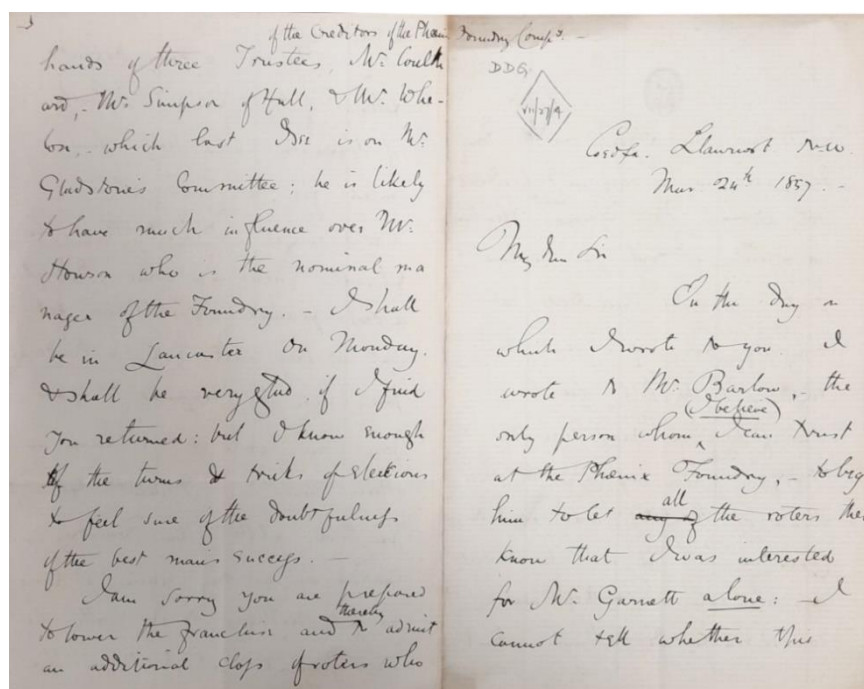 of the Creditors of the Phœnix Foundry Compy. -
hands of three Trustees, Mr. Coulth
ard, - Mr. Simpson of Hull, & Mr. Whe-
lon, - which last I see is on Mr.
Gladstone's Committee; he is likely
to have much influence over Mr.
Howson who is the nominal ma
nager of the Foundry. - I shall
be in Lancaster on Monday.
& shall be very glad if I find
you returned: but I know enough
of the turns & tricks of elections
to feel sure of the doubtfulness
of the best man's success. -
I am sorry you are prepared
to lower the franchise and thereby to admit
an additional class of voters who
DDG
Coedfa. Llanrwst N.W.
Mar 24th 1857. -
My dear Sir
On the day on
which I wrote to you I
wrote to Mr. Barlow, - the
only person whom (I believe) I can trust
at the Phœnix Foundry, - to beg
him to let any of all the voters ther
know that I was interested
for Mr. Garnett alone: - I
cannot tell whether this